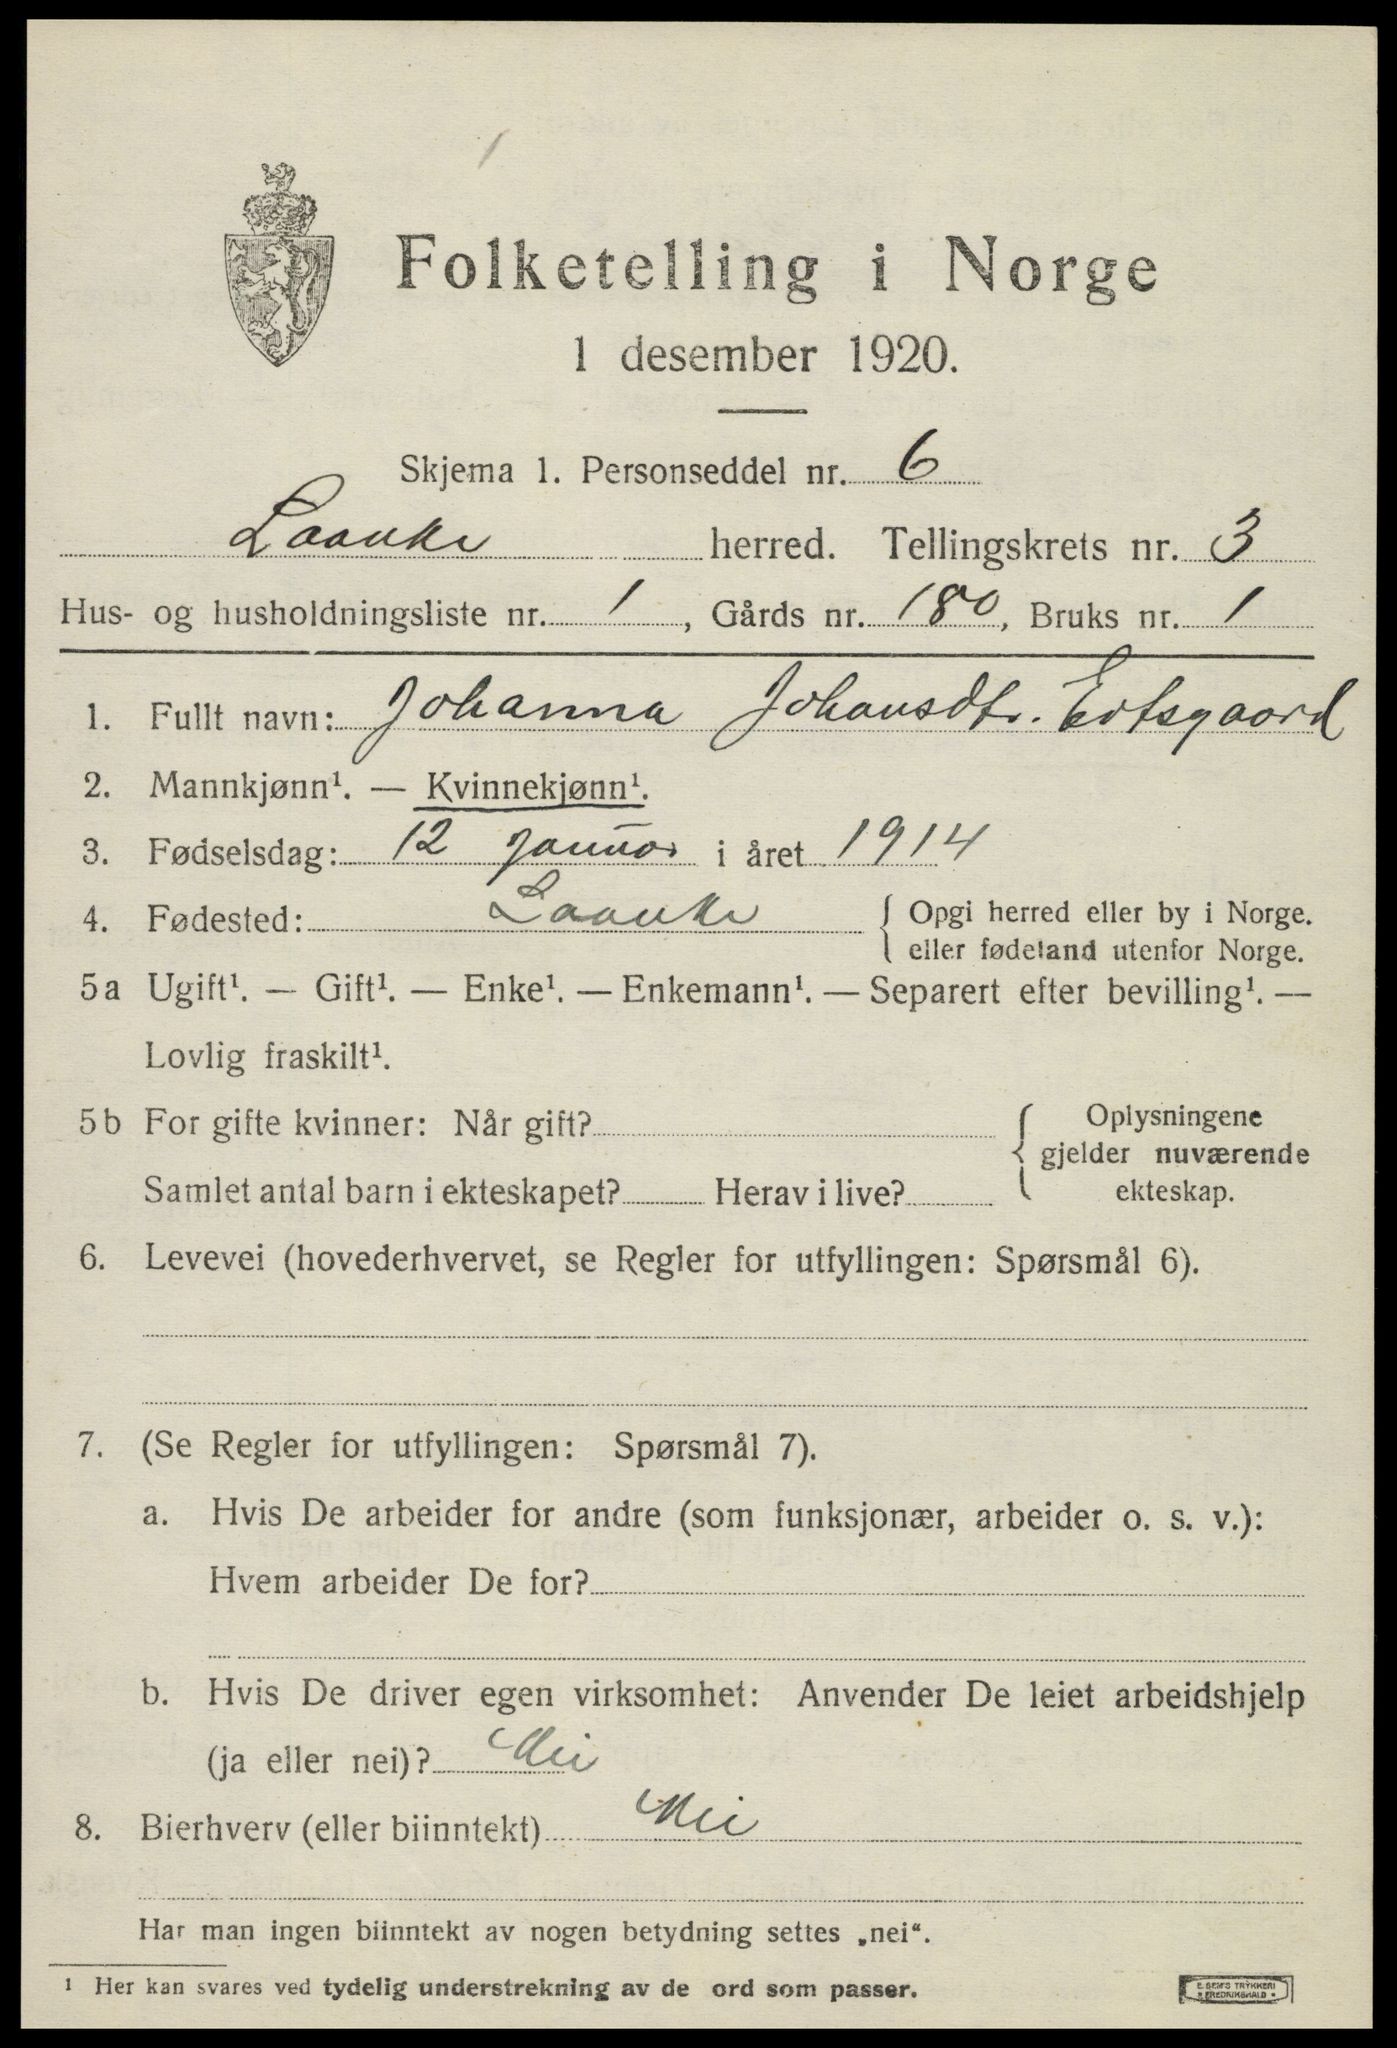 Folketelling i Norge
1 desember 1920.
Skjema 1. Personseddel nr. 6
Laanke herred. Tellingskrets nr. 3
Hus- og husholdningsliste nr. 1, Gårds nr. 180, Bruks nr. 1
1. Fullt navn: Johanna Johansdtr. Ertsgaard
2. Mannkjønn¹. — Kvinnekjønn¹.
3. Fødselsdag: 12 Januar i året 1914
4. Fødested: Laanke { Opgi herred eller by i Norge.
eller fødeland utenfor Norge.
5a Ugift¹. — Gift¹. — Enke¹. — Enkemann¹. — Separert efter bevilling¹. —
Lovlig fraskilt¹.
5b For gifte kvinner: Når gift? { Oplysningene
gjelder nuværende
Samlet antal barn i ekteskapet? Herav i live? ekteskap.
6. Levevei (hovederhvervet, se Regler for utfyllingen: Spørsmål 6).
7. (Se Regler for utfyllingen: Spørsmål 7).
a. Hvis De arbeider for andre (som funksjonær, arbeider o. s. v.):
Hvem arbeider De for?
b. Hvis De driver egen virksomhet: Anvender De leiet arbeidshjelp
(ja eller nei)? Nei
8. Bierhverv (eller biinntekt) Nei
Har man ingen biinntekt av nogen betydning settes „nei“.
1 Her kan svares ved tydelig understrekning av de ord som passer.
E. SEM'S TRYKKERI
FREDRIKSHALD